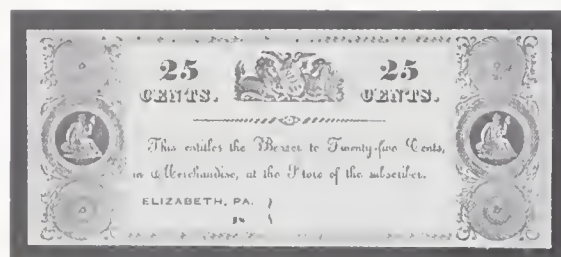 25 25
CENTS. CENTS.
This entitles the Bearer to Twenty-five Cents,
in Merchandise, at the Store of the subscriber.
ELIZABETH, PA. }
18 }